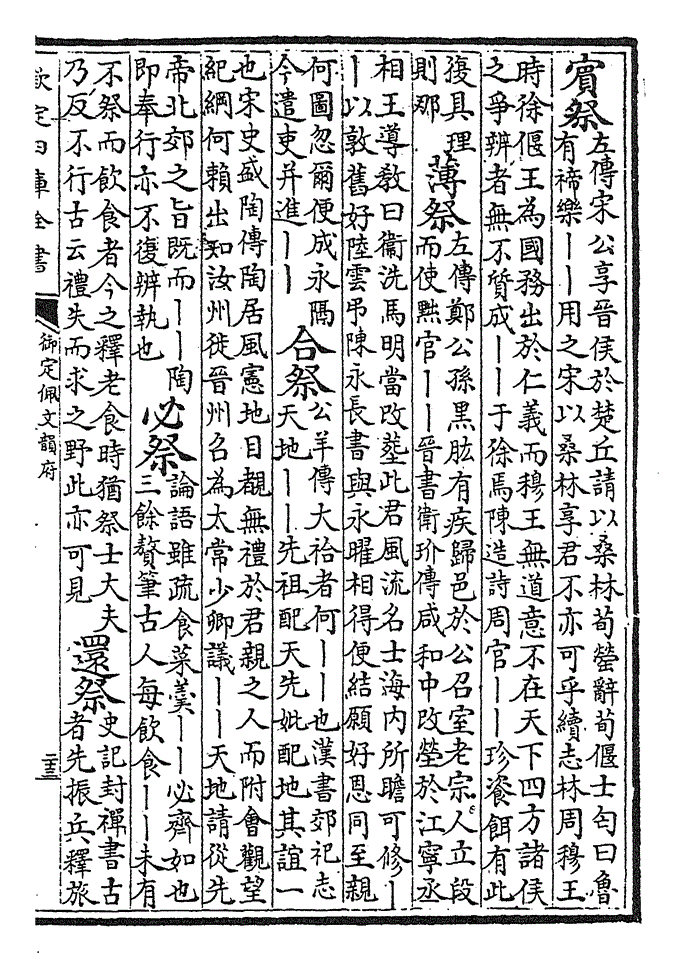 賔祭左傳宋公享晉侯於楚丘請以桑林荀罃辭荀偃士匄曰魯
有禘樂丨丨用之宋以桑林享君不亦可乎續志林周穆王
時徐偃王為國務出於仁義而穆王無道意不在天下四方諸侯
之爭辨者無不質成丨丨于徐焉陳造詩周官丨丨珍瓷餌有此
復具理
則那
薄祭左傳鄭公孫黒肱有疾歸邑於公召室老宗人立段
而使黜官丨丨晉書衛玠傳咸和中改塋於江寧丞
相王導教曰衞洗馬明當改𦵏此君風流名士海内所瞻可修丨
丨以敦舊好陸雲弔陳永長書與永曜相得便結願好恩同至親
何圖忽爾便成永隔
今遣吏并進丨丨
合祭公羊傳大祫者何丨丨也漢書郊祀志
天地丨丨先祖配天先妣配地其誼一
也宋史盛陶傳陶居風憲地目覩無禮於君親之人而附會觀望
紀綱何頼出知汝州徙晉州召為太常少卿議丨丨天地請從先
帝北郊之旨既而丨丨陶
即奉行亦不復辨執也
必祭論語雖疏食菜羮丨丨必齊如也
三餘贅筆古人每飲食丨丨未有
不祭而飲食者今之釋老食時猶祭士大夫
乃反不行古云禮失而求之野此亦可見
還祭史記封禪書古
者先振兵釋旅
欽定四庫全書
御定佩文韻府
二十三